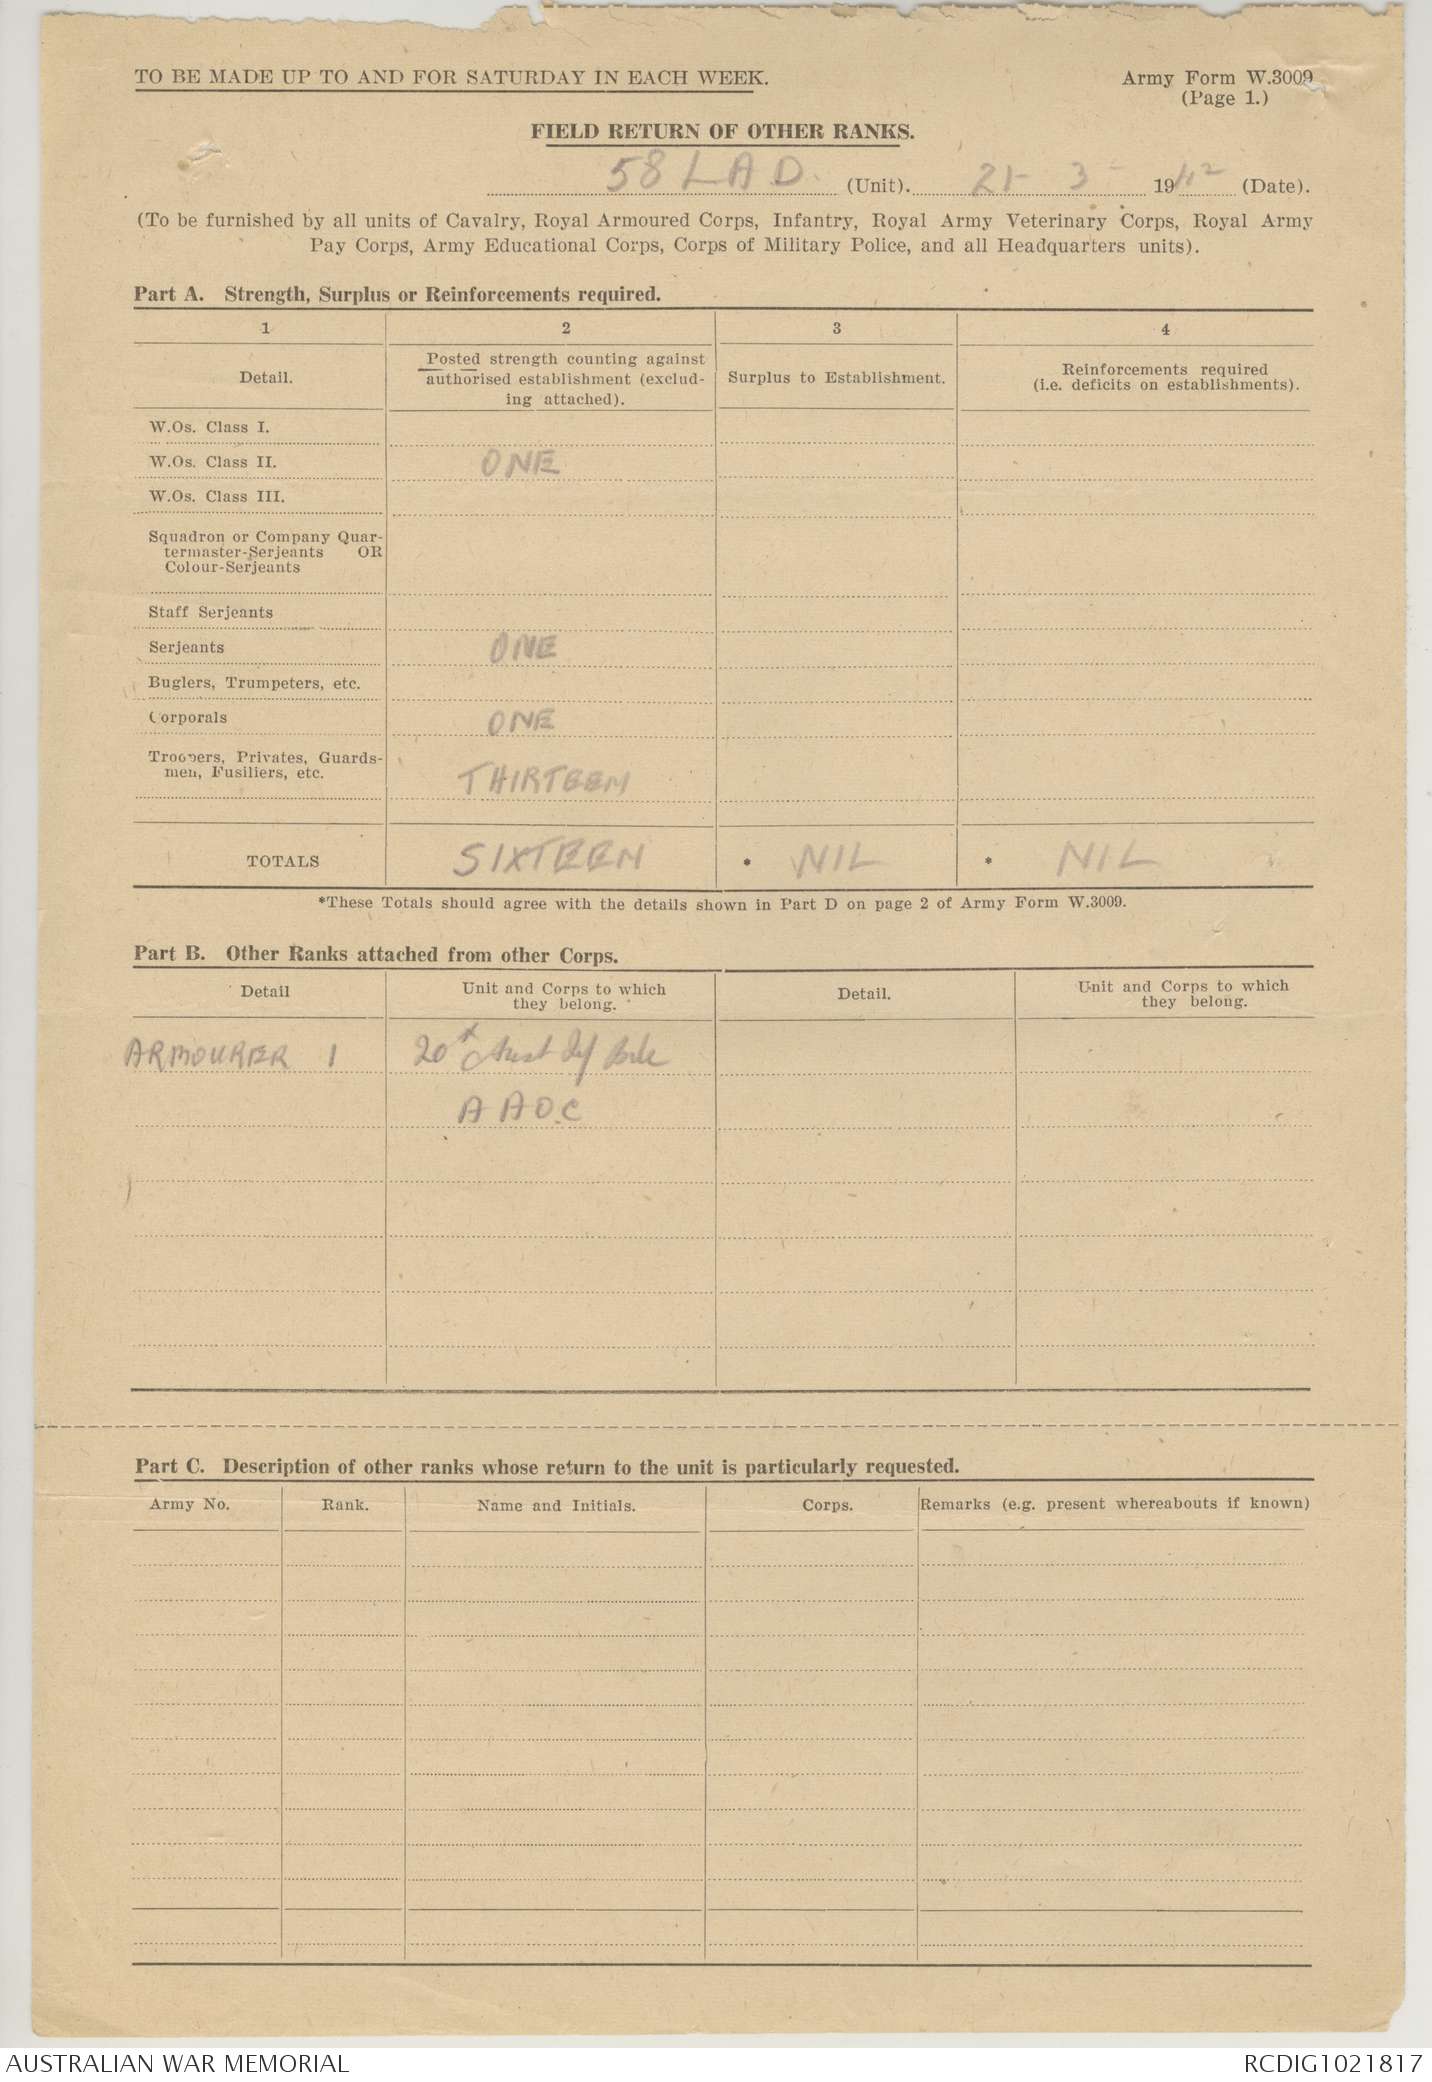 TO BE MADE UP TO AND FOR SATURDAY IN EACH WEEK.
Army Form W.3009
(Page 1.)
FIELD RETURN OF OTHER RANKS.
58 LAD. (Unit). 21- 3- 1942 (Date).
(To be furnished by all units of Cavalry, Royal Armoured Corps, Infantry, Royal Army Veterinary Corps, Royal Army
Pay Corps, Army Educational Corps, Corps of Military Police, and all Headquarters units).
Part A. Strength, Surplus or Reinforcements required.
1 2 3 4
Detail.
Posted strength counting against
authorised establishment (exclud-
ing attached).
Surplus to Establishment.
Reinforcements required
(i.e. deficits on establishments).
W.Os. Class I.
W.Os. Class II. ONE
W.Os. Class III.
Squadron or Company Quar-
termaster-Serjeants OR
Colour-Serjeants
Staff Serjeants
Serjeants ONE
Buglers, Trumpeters, etc.
Corporals ONE
Troopers, Privates, Guards-
men, Fusiliers, etc. THIRTEEN
TOTALS SIXTEEN * NIL * NIL
*These Totals should agree with the details shown in Part D on page 2 of Army Form W.3009.
Part B. Other Ranks attached from other Corps.
Detail
Unit and Corps to which
they belong.
Detail.
Unit and Corps to which
they belong.
ARMOURER 1 20 Aust Inf Bde
A A O C
Part C. Description of other ranks whose return to the unit is particularly requested.
Army No. Rank. Name and Initials. Corps. Remarks (e.g. present whereabouts if known)
AUSTRALIAN WAR MEMORIAL
RCDIG1021817